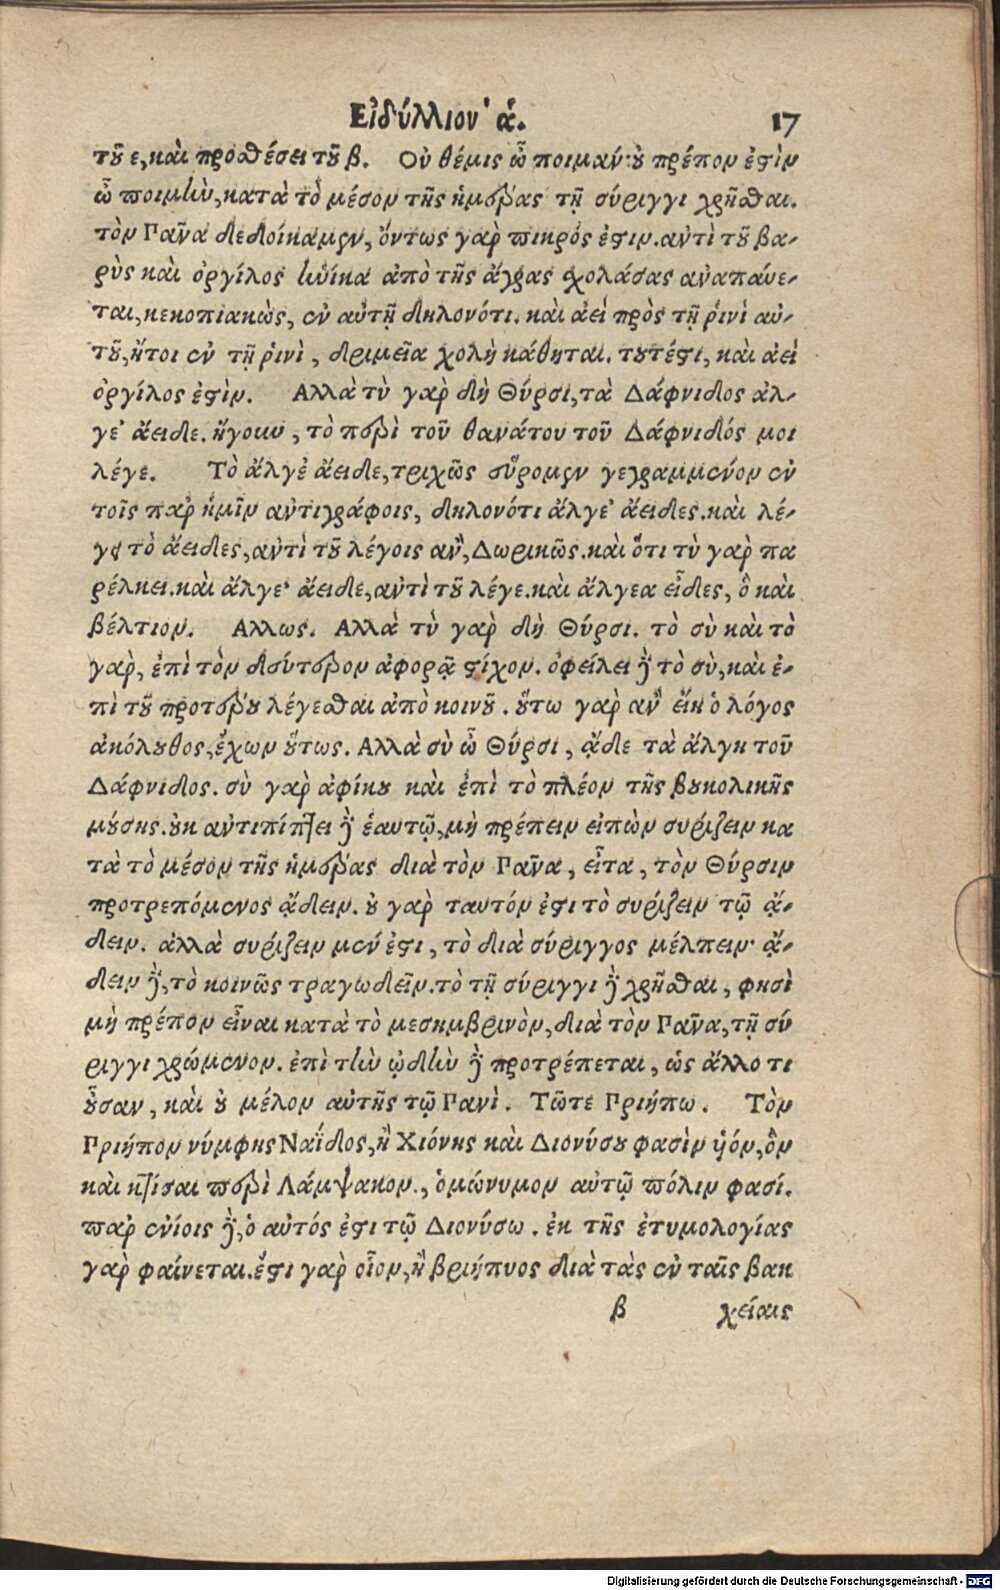 Εἰδύλλιον ά. 17
τοῦ ε, καὶ προσθέσει τοῦ β. Οὐ θέμις ὦ ποιμάν· οὐ πρέπον ἐστὶν
ὦ ποιμὴν, κατὰ τὸ μέσον τῆς ἡμέρας τῇ σύριγγι χρῆσθαι.
τὸν Πᾶνα δεδοίκαμεν, ὄντως γὰρ πικρός ἐστιν. ἀντὶ τοῦ βα-
ρὺς καὶ ὀργίλος ἡνίκα ἀπὸ τῆς ἄγρας σχολάσας ἀναπαύε-
ται, κεκοπιακὼς, ἐν αὐτῇ δηλονότι. καὶ ἀεὶ πρὸς τῇ ῥινὶ αὐ-
τοῦ, ἤτοι ἐν τῇ ῥινὶ, δριμεῖα χολὴ κάθηται. τουτέστι, καὶ ἀεὶ
ὀργίλος ἐστὶν. Αλλὰ τὺ γὰρ δὴ Θύρσι, τὰ Δάφνιδος ἀλ-
γε' ἄειδε. ἤγουν, τὸ περὶ τοῦ θανάτου τοῦ Δάφνιδός μοι
λέγε. Τὸ ἄλγε ἄειδε, τριχῶς εὕρομεν γεγραμμένον ἐν
τοῖς παρ ἡμῖν ἀντιγράφοις, δηλονότι ἄλγε' ἄειδες. καὶ λέ-
γει τὸ ἄειδες, ἀντὶ τοῦ λέγοις ἂν, Δωρικῶς. καὶ ὅτι τὺ γὰρ πα
ρέλκει. καὶ ἄλγε' ἄειδε, ἀντὶ τοῦ λέγε. καὶ ἄλγεα εἶδες, ὃ καὶ
βέλτιον. Αλλως. Αλλὰ τὺ γὰρ δὴ Θύρσι. τὸ σὺ καὶ τὸ
γὰρ, ἐπὶ τὸν δεύτερον ἀφορᾷ στίχον. ὀφείλει δὲ τὸ σὺ, καὶ ἐ-
πὶ τοῦ προτέρου λέγεσθαι ἀπὸ κοινοῦ. οὕτω γὰρ ἂν εἴη ὁ λόγος
ἀκόλουθος, ἔχων οὕτως. Αλλὰ σὺ ὦ Θύρσι, ᾄδε τὰ ἄλγη τοῦ
Δάφνιδος. σὺ γὰρ ἀφίκου καὶ ἐπὶ τὸ πλέον τῆς βουκολικῆς
μούσης. οὐκ ἀντιπίπτει δὲ ἑαυτῷ, μὴ πρέπειν εἰπὼν συρίζειν κα
τὰ τὸ μέσον τῆς ἡμέρας διὰ τὸν Πᾶνα, εἶτα, τὸν Θύρσιν
προτρεπόμενος ᾄδειν. οὐ γὰρ ταυτόν ἐστι τὸ συρίζειν τῷ ᾄ-
δειν. ἀλλὰ συρίζειν μέν ἐστι, τὸ διὰ σύριγγος μέλπειν· ᾄ-
δειν δὲ, τὸ κοινῶς τραγωδεῖν. τὸ τῇ σύριγγι δὲ χρῆσθαι, φησὶ
μὴ πρέπον εἶναι κατὰ τὸ μεσημβρινὸν, διὰ τὸν Πᾶνα, τῇ σύ
ριγγι χρώμενον. ἐπὶ τὴν ᾠδὴν δὲ προτρέπεται, ὡς ἄλλο τι
οὖσαν, καὶ οὐ μέλον αὐτῆς τῷ Πανὶ. Τῶτε Πριήπω. Τὸν
Πριήπον νύμφης Ναΐδος, ἢ Χιόνης καὶ Διονύσου φασὶν υἱόν, ὃν
καὶ κτίσαι περὶ Λάμψακον, ὁμώνυμον αὐτῷ πόλιν φασί.
παρ ἐνίοις δὲ, ὁ αὐτός ἐστι τῷ Διονύσω. ἐκ τῆς ἐτυμολογίας
γὰρ φαίνεται. ἔστι γὰρ οἷον, ἢ βριήπυος διὰ τὰς ἐν ταῖς βακ
β χείαις
Digitalisierung gefördert durch die Deutsche Forschungsgemeinschaft - DFG